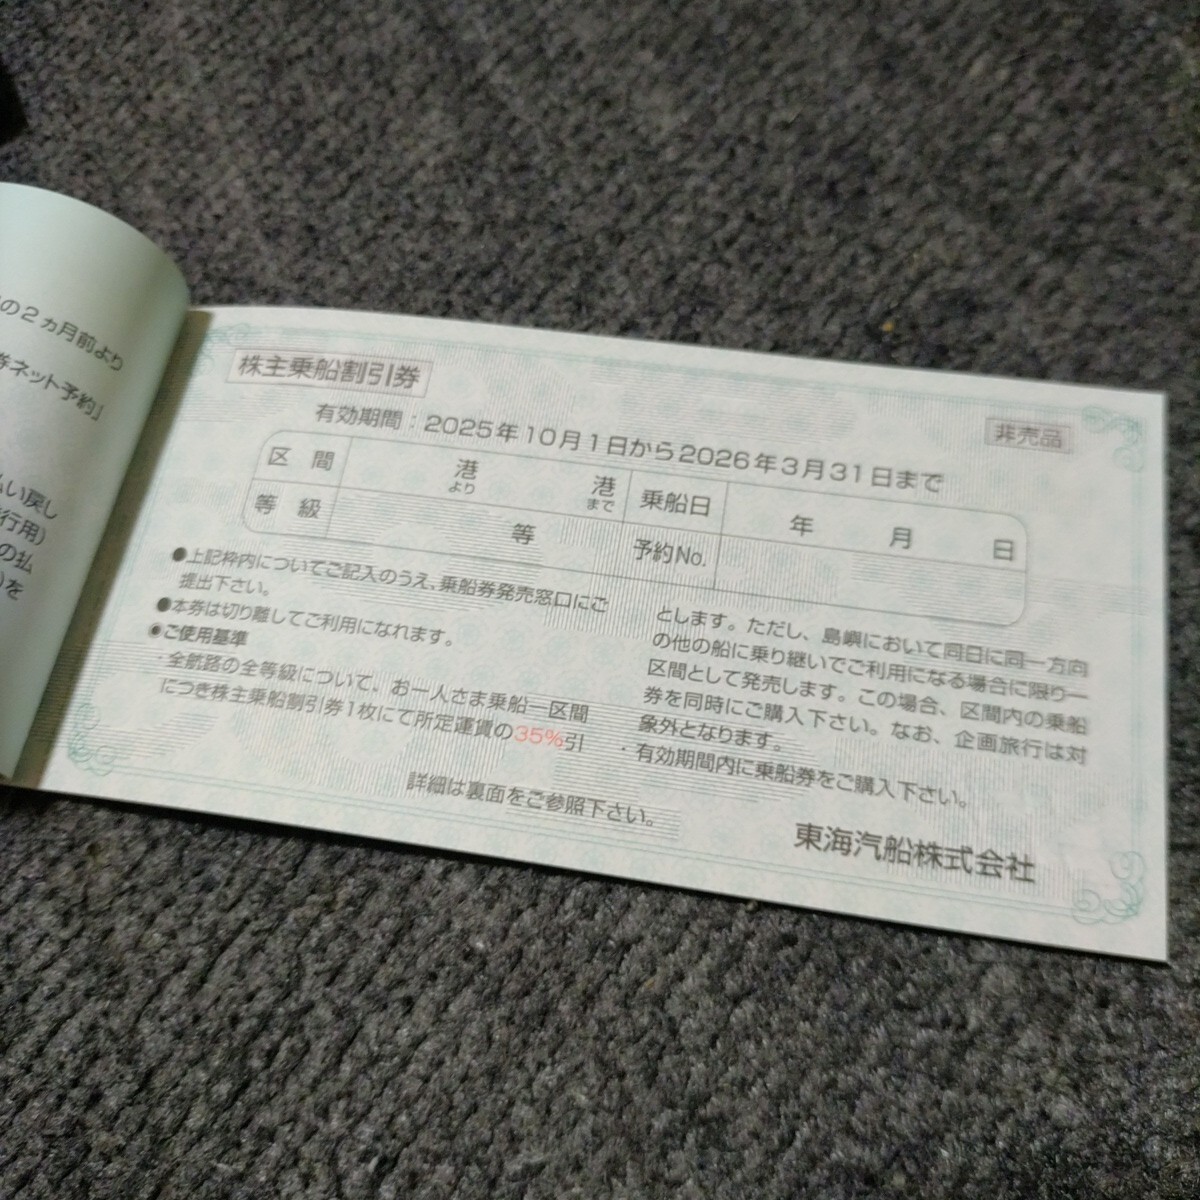 の２ヵ月前より
券ネット予約」
い戻し
行用)
の払
を
株主乗船割引券
非売品
有効期間：2025年10月1日から2026年3月31日まで
区間 港より 港まで 乗船日 年 月 日
等級 等 予約No.
●上記枠内についてご記入のうえ、乗船券発売窓口にご
提出下さい。
●本券は切り離してご利用になれます。
●ご使用基準
・全航路の全等級について、お一人さま乗船一区間
につき株主乗船割引券1枚にて所定運賃の35%引
とします。ただし、島嶼において同日に同一方向
の他の船に乗り継いでご利用になる場合に限り一
区間として発売します。この場合、区間内の乗船
券を同時にご購入下さい。なお、企画旅行は対
象外となります。
・有効期間内に乗船券をご購入下さい。
詳細は裏面をご参照下さい。
東海汽船株式会社